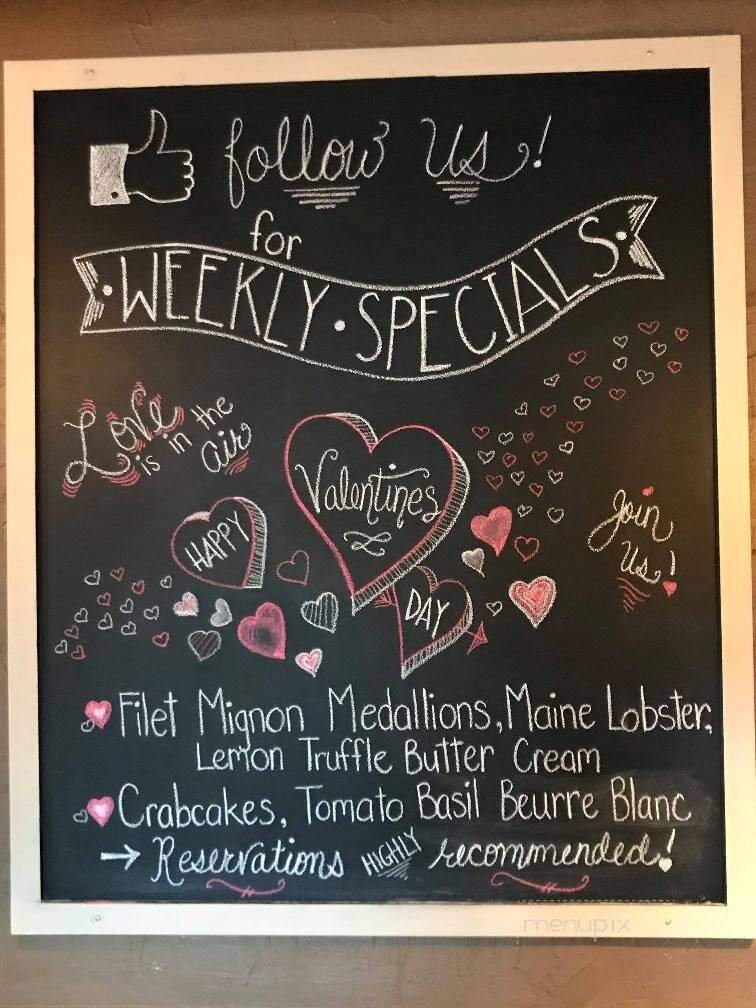 follow Us!
for
WEEKLY · SPECIALS
Love
is in the
air
Valentines
HAPPY
DAY
Join
Us!
Filet Mignon Medallions, Maine Lobster,
Lemon Truffle Butter Cream
Crabcakes, Tomato Basil Beurre Blanc
→ Reservations HIGHLY recommended!
menupix